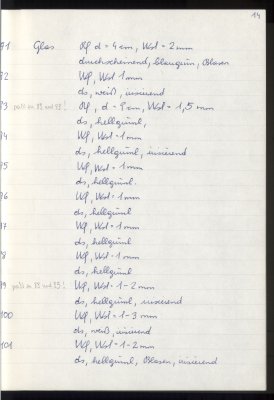 14
91 Glas Rf d = 4 cm, Wd = 2 mm
durchscheinend, blaugrün, Blasen
92 Wf Wd 1 mm
ds, weiß, irisierend
93 paßt an 89 und 99! Rf, d = 9 cm, Wd = 1,5 mm
ds, hellgrünl,
94 Wf, Wd = 1 mm
ds, hellgrünl, irisierend
95 Wf, Wd = 1 mm
ds, hellgrünl.
96 Wf, Wd = 1 mm
ds, hellgrünl
97 Wf Wd = 1 mm
ds, hellgrünl
98 Wf, Wd = 1 mm
ds, hellgrünl
99 Wf, Wd = 1-2 mm
ds, hellgrünl, irisierend
100 Wf, Wd = 1-3 mm
ds, weiß, irisierend
101 Wf, Wd = 1-2 mm
ds, hellgrünl, Blasen, irisierend